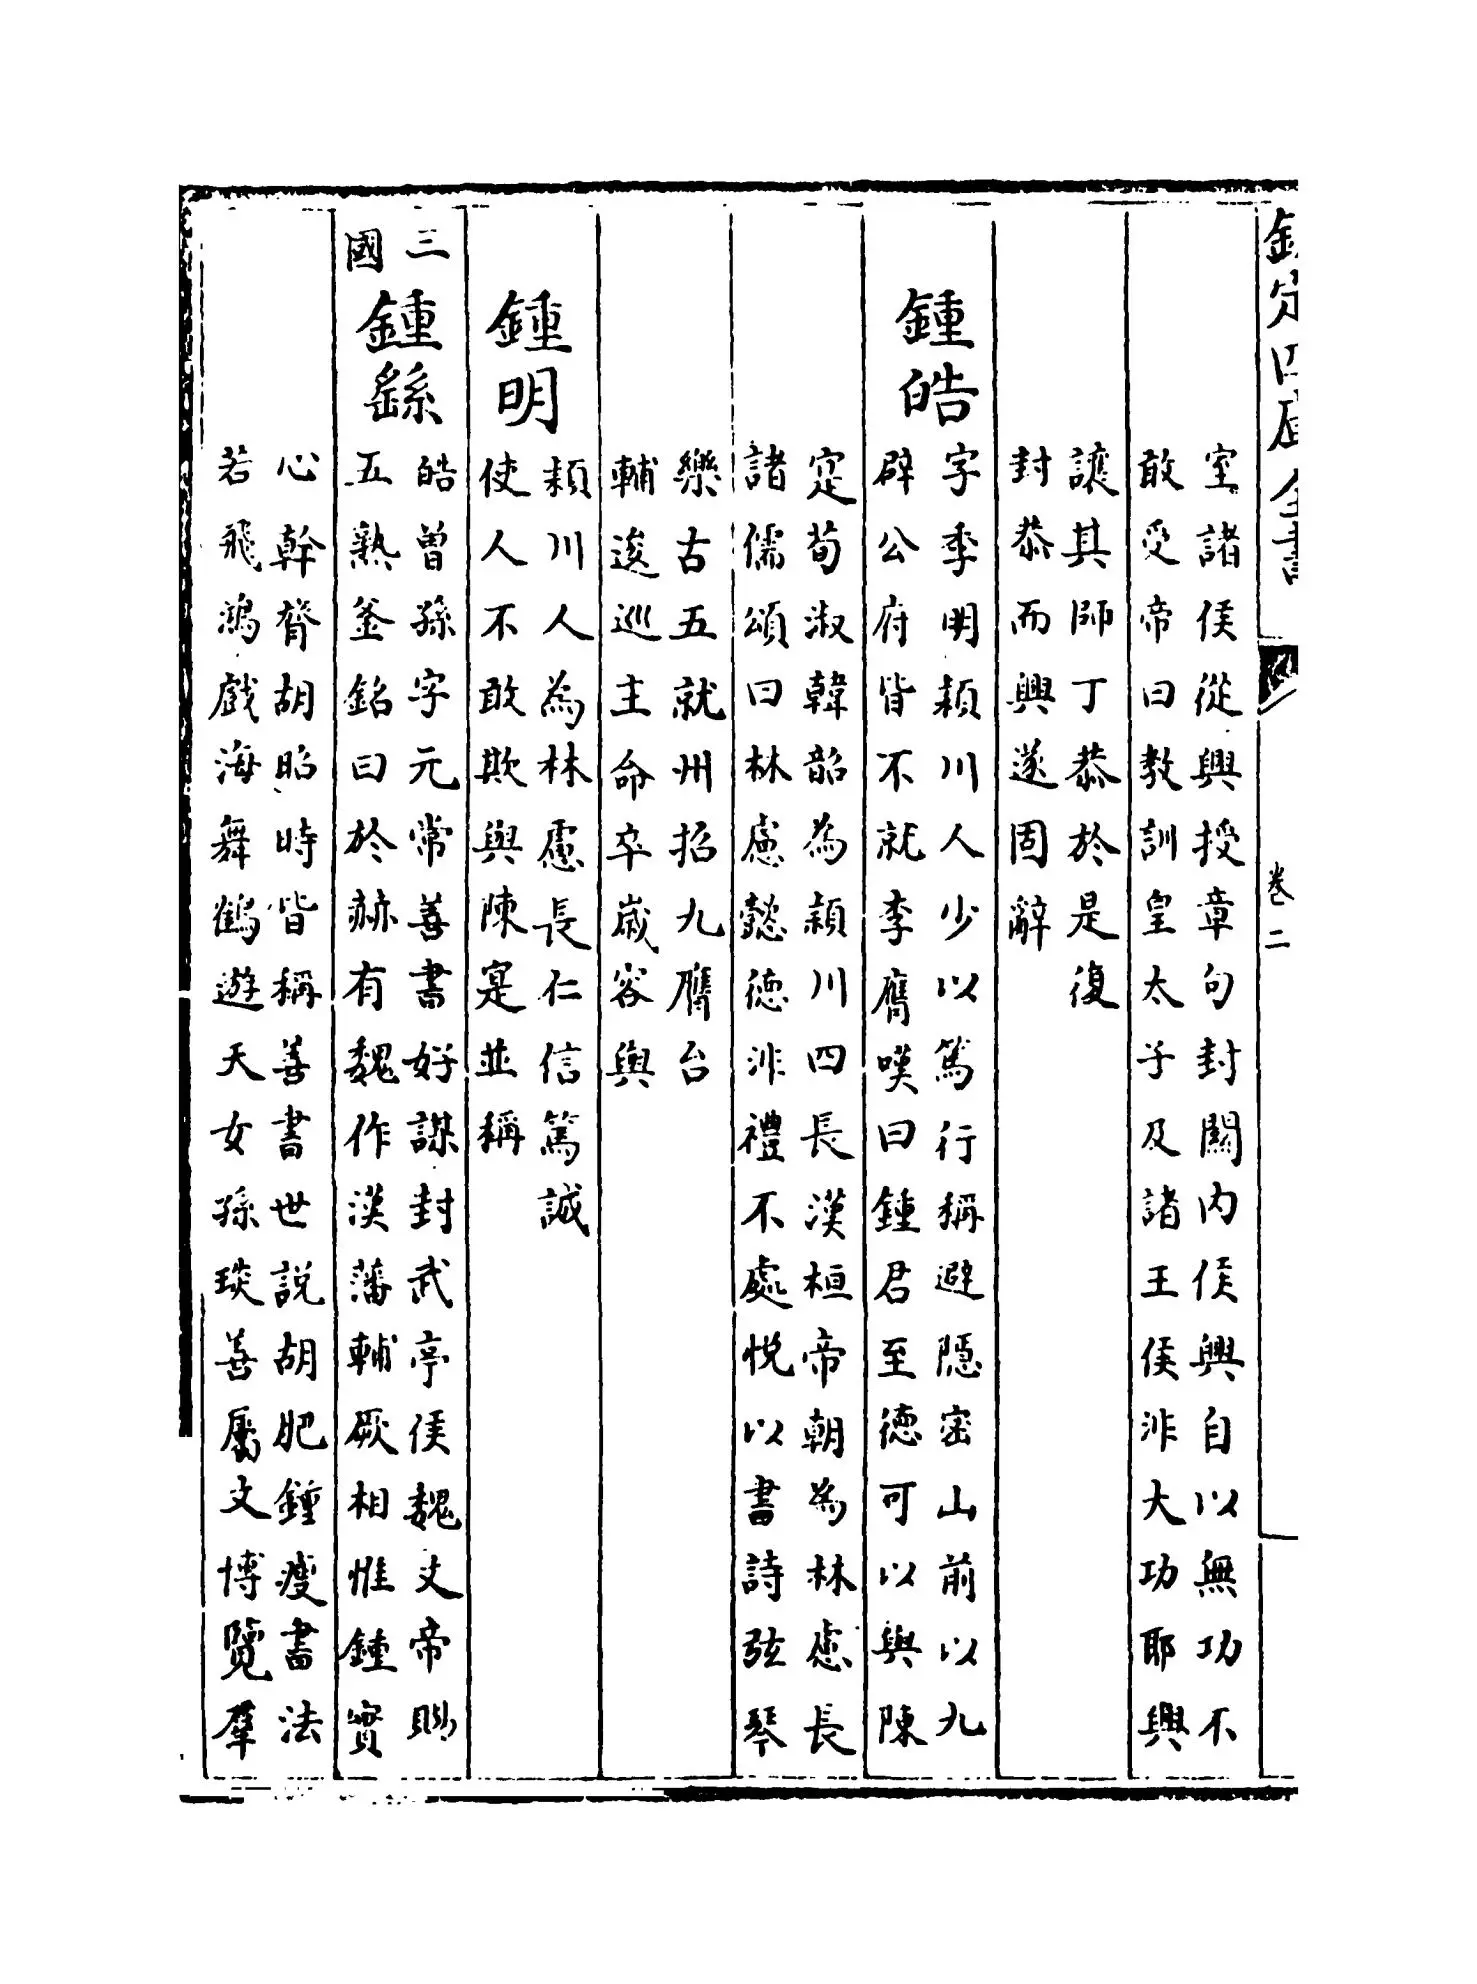 欽定四庫全書
卷二
室諸侯從興授章句封關内侯興自以無功不
敢受帝曰教訓皇太子及諸王侯非大功耶興
讓其師丁恭於是復
封恭而興遂固辭
鍾皓
字季明潁川人少以篤行稱避隠宻山前以九
辟公府皆不就李膺嘆曰鍾君至徳可以與陳
寔荀淑韓韶為潁川四長漢桓帝朝為林慮長
諸儒頌曰林慮懿徳非禮不處悦以書詩弦琴
樂古五就州招九膺台
輔逡巡主命卒嵗容與
鍾明
潁川人為林慮長仁信篤誠
使人不敢欺與陳寔並稱
三國
鍾繇
皓曾孫字元常善書好謀封武亭侯魏文帝賜
五熟釜銘曰於赫有魏作漢藩輔厥相惟鍾實
心幹膂胡昭時皆稱善書世説胡肥鍾瘦書法
若飛鴻戲海舞鶴遊天女孫琰善屬文博覽羣